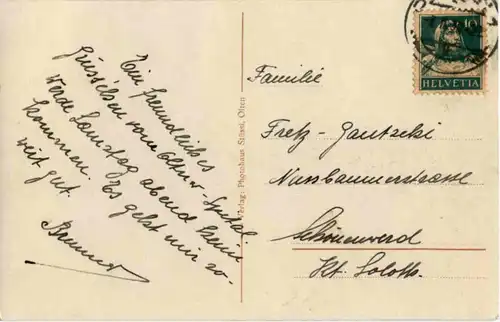 Ein freundliches
Grüsselein vom Oltner-Spital.
Werde Samstag abend heim
kommen. Es geht mir so-
weit gut.
Brunner
Verlag: Photohaus Stüssi, Olten
10
HELVETIA
Familie
Fretz-Gautschi
Nussbaumerstrasse
Schönenwerd
Kt. Soloth.